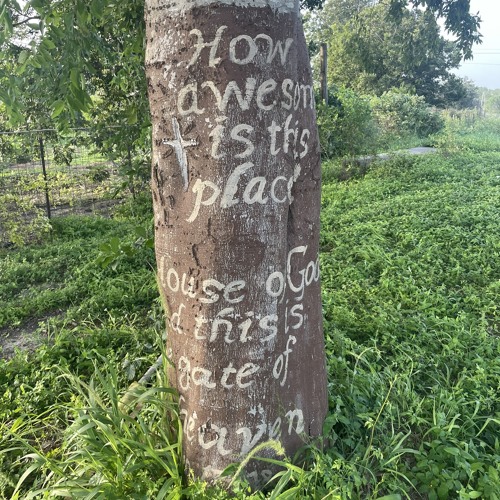 How
awesom
is this
place
ouse oGod
d this is
gate of
eaven